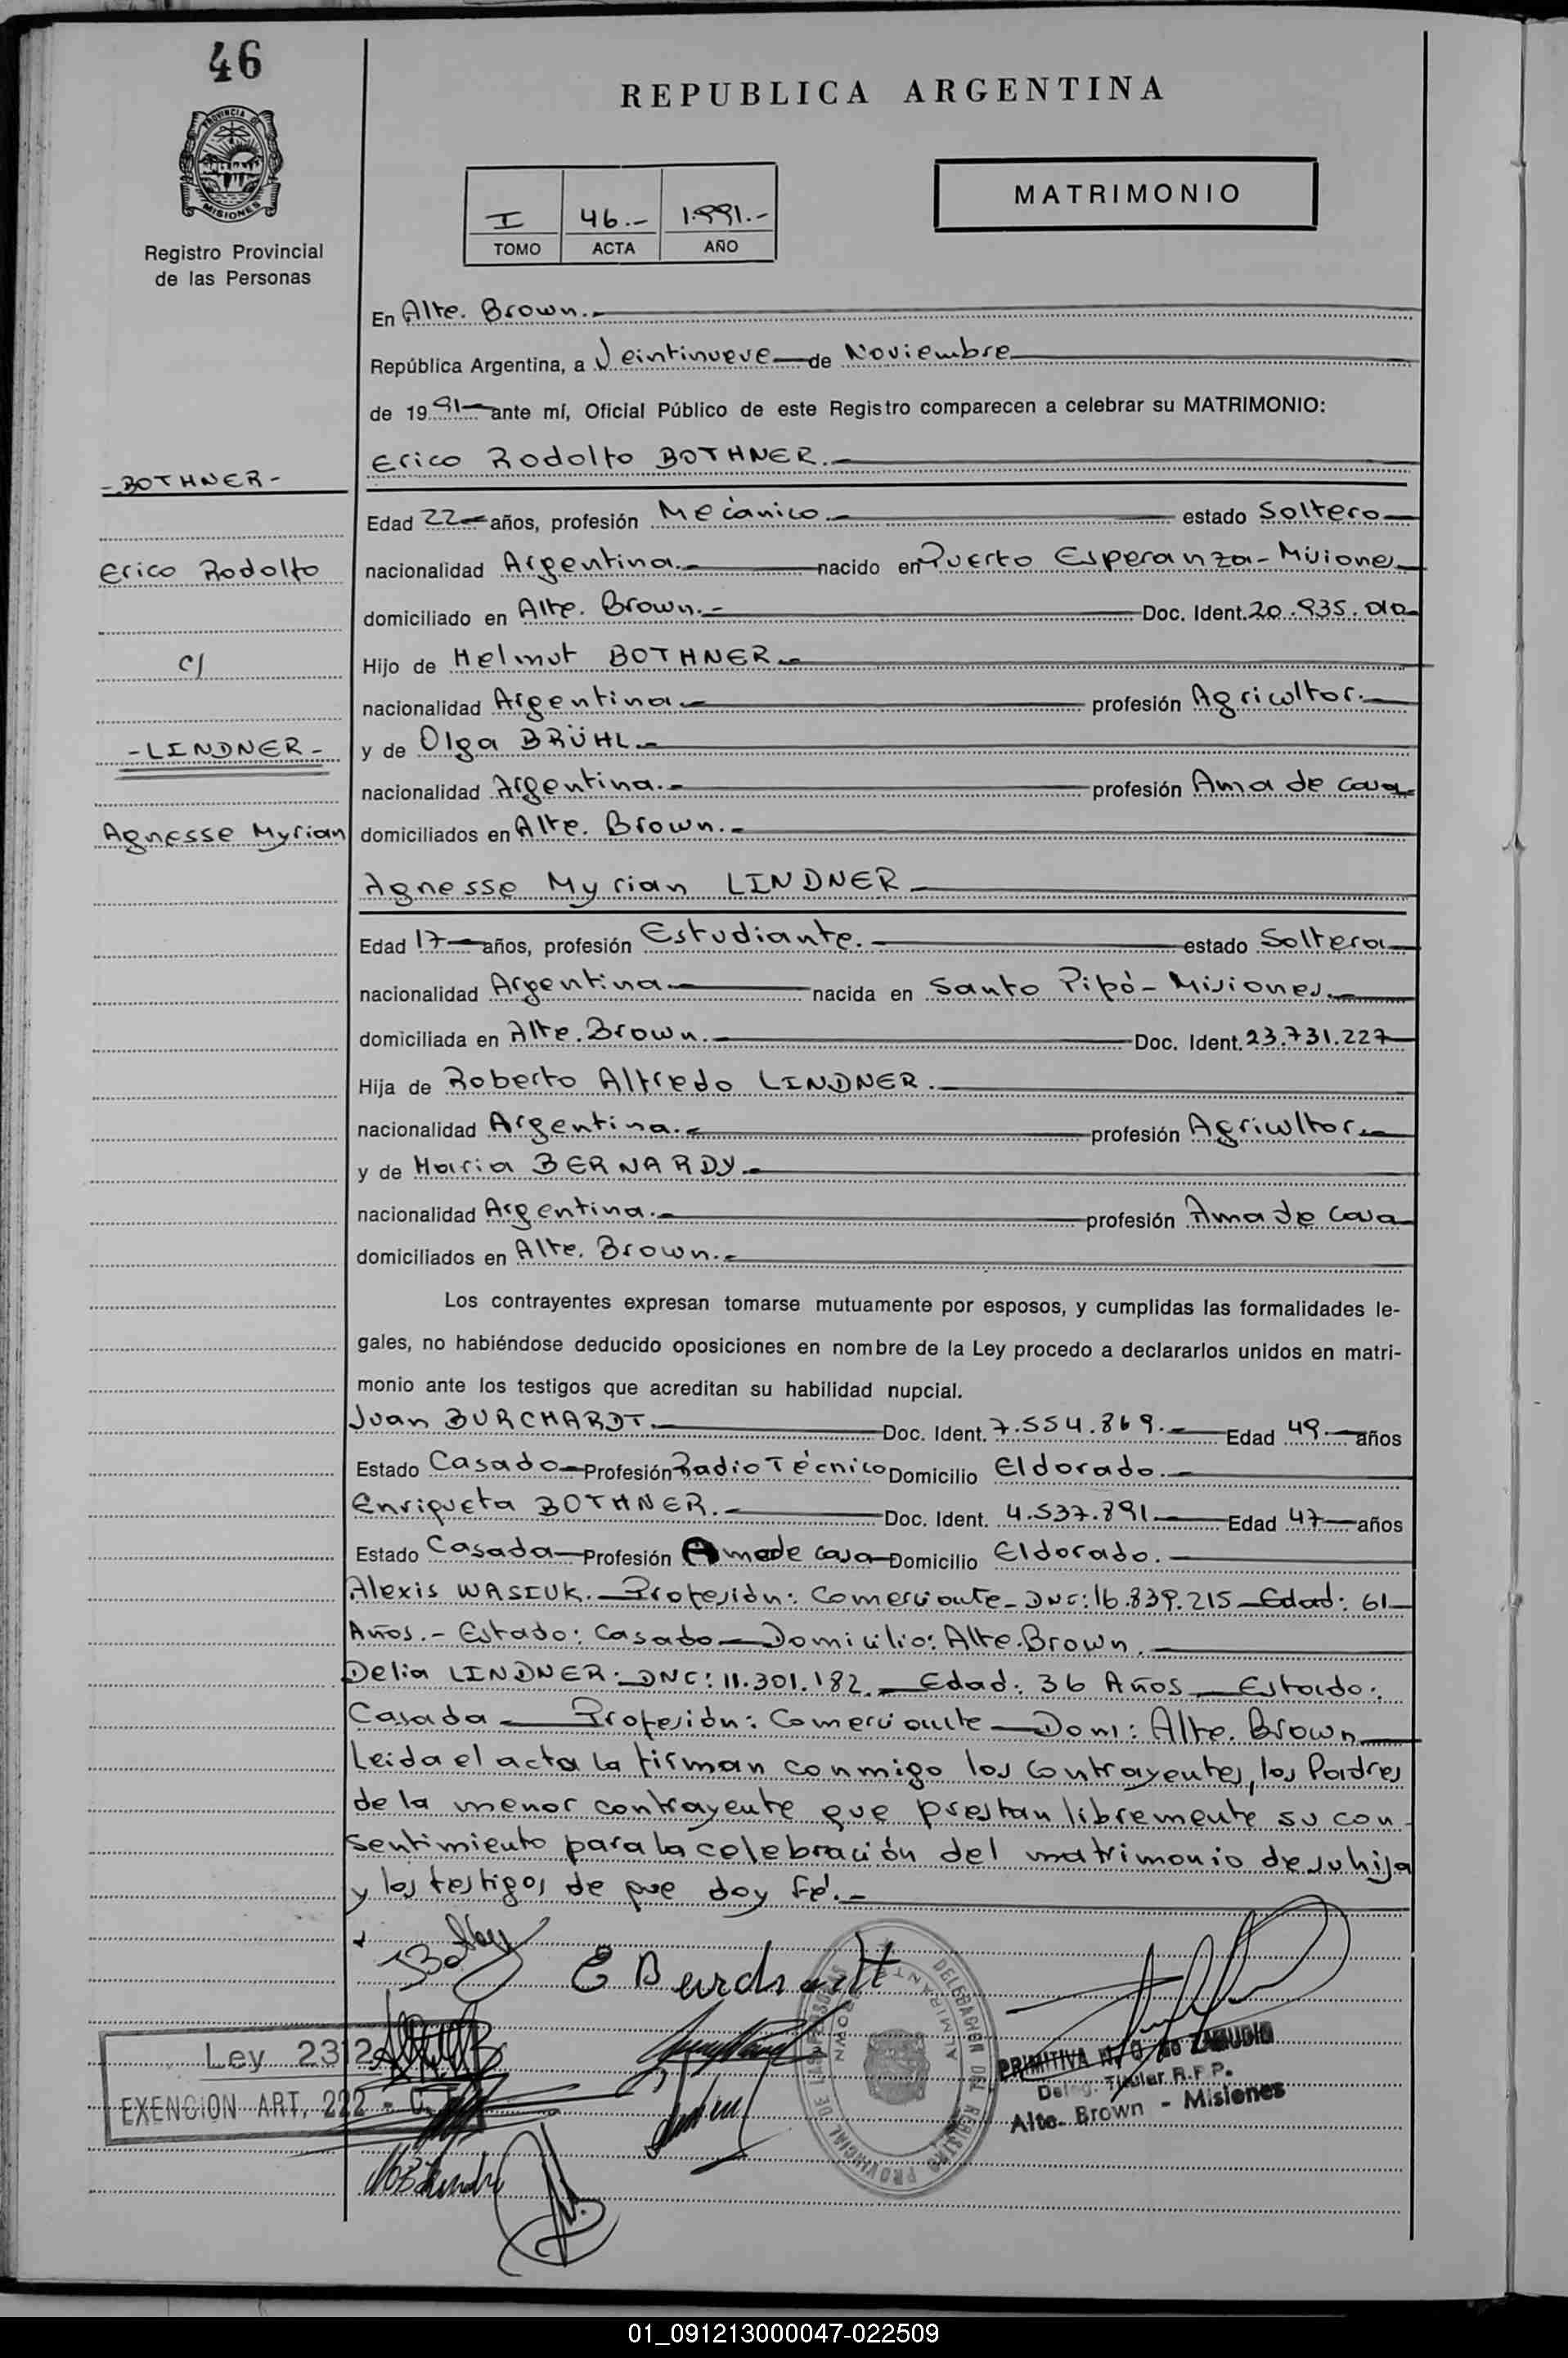 46
REPUBLICA ARGENTINA
PROVINCIA DE
MISIONES
Registro Provincial
de las Personas
I 46.- 1.991.-
TOMO ACTA AÑO
MATRIMONIO
En Alte. Brown.-
República Argentina, a Veintinueve de Noviembre
de 1991 ante mí, Oficial Público de este Registro comparecen a celebrar su MATRIMONIO:
Erico Rodolfo BOTHNER.-
- BOTHNER -
Edad 22 años, profesión Mecánico.- estado Soltero
Erico Rodolfo
nacionalidad Argentina.- nacido en Puerto Esperanza - Misiones
domiciliado en Alte. Brown.- Doc. Ident. 20.935.010
c/
Hijo de Helmut BOTHNER.-
nacionalidad Argentina profesión Agricultor.
- LINDNER -
y de Olga BRÜHL.-
nacionalidad Argentina.- profesión Ama de casa
Agnesse Myrian
domiciliados en Alte. Brown.-
Agnesse Myrian LINDNER
Edad 17 años, profesión Estudiante.- estado Soltera
nacionalidad Argentina nacida en Santo Pipó - Misiones.
domiciliada en Alte. Brown.- Doc. Ident. 23.731.227
Hija de Roberto Alfredo LINDNER.-
nacionalidad Argentina.- profesión Agricultor
y de Maria BERNARDY.-
nacionalidad Argentina.- profesión Ama de casa
domiciliados en Alte. Brown.-
Los contrayentes expresan tomarse mutuamente por esposos, y cumplidas las formalidades le-
gales, no habiéndose deducido oposiciones en nombre de la Ley procedo a declararlos unidos en matri-
monio ante los testigos que acreditan su habilidad nupcial.
Juan BURCHARDT Doc. Ident. 7.554.869.- Edad 49 años
Estado Casado Profesión Radio Técnico Domicilio Eldorado.-
Enriqueta BOTHNER.- Doc. Ident. 4.537.891 Edad 47 años
Estado Casada Profesión Ama de casa Domicilio Eldorado.-
Alexis WASIUK.- Profesión: Comerciante - DNI: 16.839.215 - Edad: 61
Años.- Estado: Casado - Domicilio: Alte. Brown.
Delia LINDNER: DNI: 11.301.182.- Edad: 36 Años - Estado:
Casada - Profesión: Comerciante - Dom: Alte. Brown
Leida el acta la firman conmigo los contrayentes, los Padres
de la menor contrayente que prestan libremente su con-
sentimiento para la celebración del matrimonio de su hija
y los testigos de que doy fé.-
E Burchardt
DELEGACION DEL REGISTRO PROVINCIAL DE LAS PERSONAS
ALMIRANTE BROWN
Ley 2312
EXENCION ART. 222
PRIMITIVA de ZAMUDIO
Deleg. Titular R.P.P.
Alte. Brown - Misiones
01_091213000047-022509